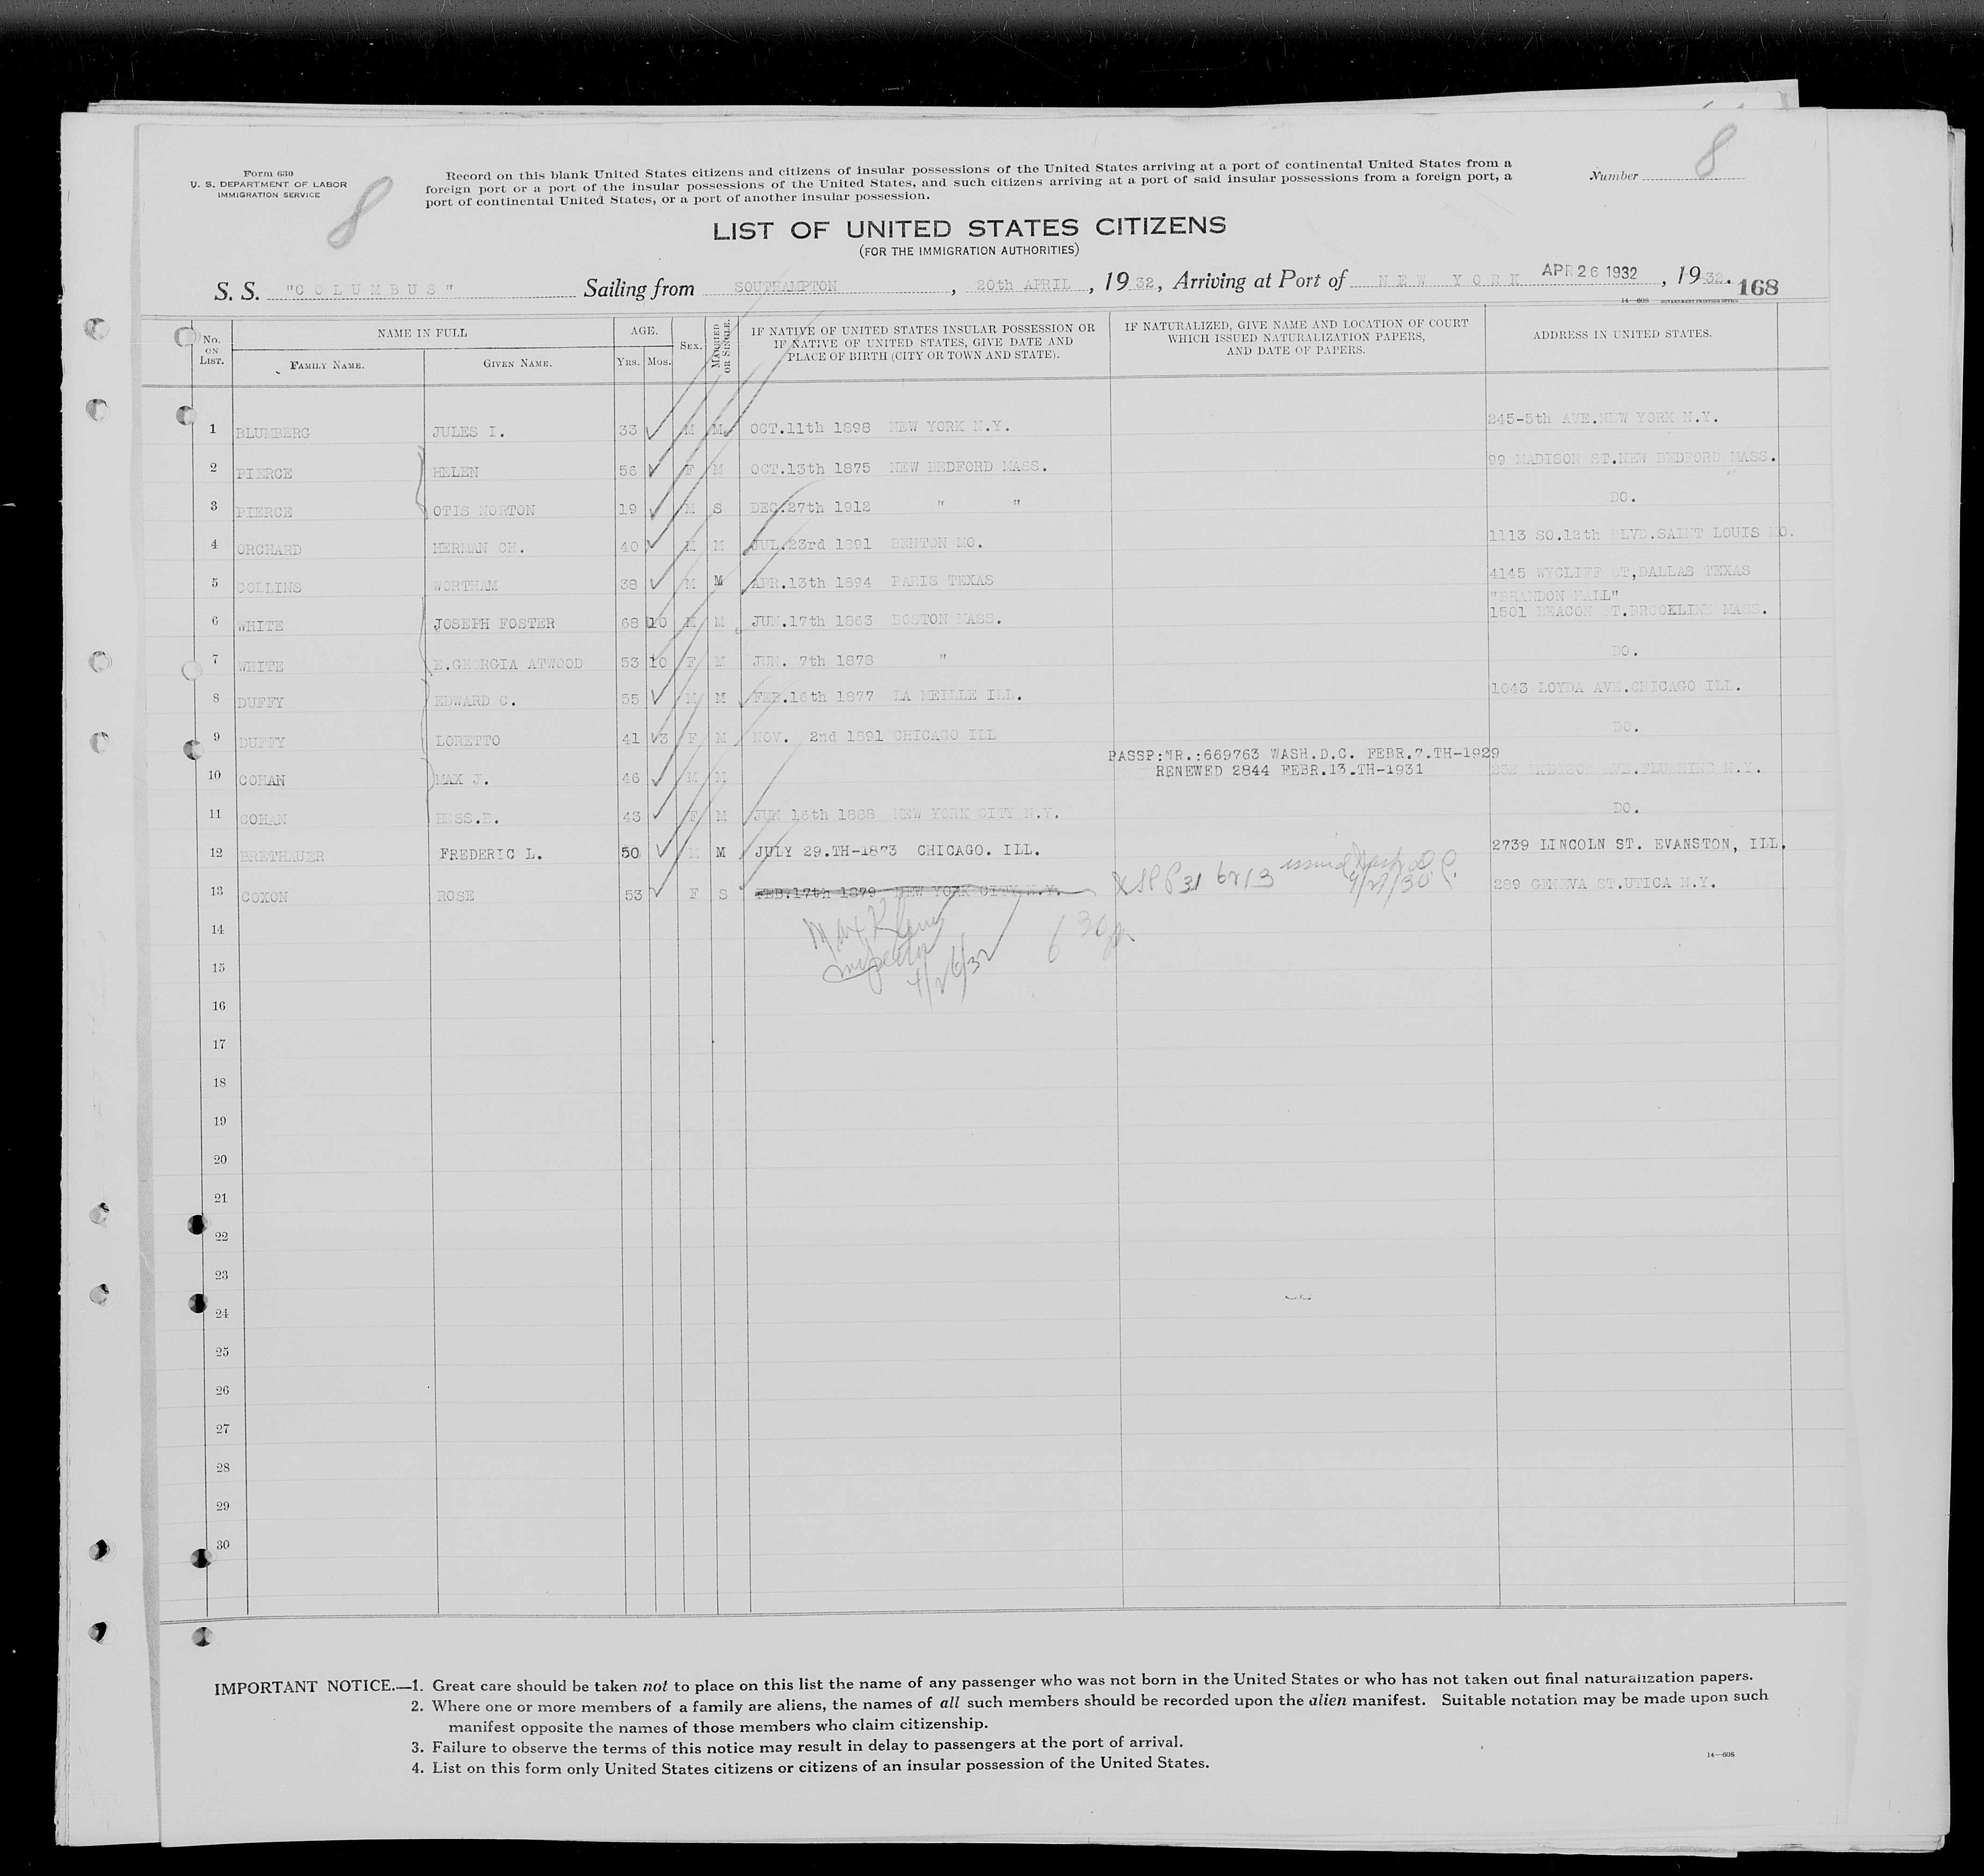 Form 630
U. S. DEPARTMENT OF LABOR
IMMIGRATION SERVICE
8
Record on this blank United States citizens and citizens of insular possessions of the United States arriving at a port of continental United States from a
foreign port or a port of the insular possessions of the United States, and such citizens arriving at a port of said insular possessions from a foreign port, a
port of continental United States, or a port of another insular possession.
Number 8
LIST OF UNITED STATES CITIZENS
(FOR THE IMMIGRATION AUTHORITIES)
S. S. "COLUMBUS" Sailing from SOUTHAMPTON, 20th APRIL, 1932, Arriving at Port of NEW YORK APR 26 1932, 1932.
14—608 GOVERNMENT PRINTING OFFICE 168
No. ON LIST. NAME IN FULL FAMILY NAME. GIVEN NAME. AGE. YRS. MOS. SEX. MARRIED OR SINGLE. IF NATIVE OF UNITED STATES INSULAR POSSESSION OR IF NATIVE OF UNITED STATES, GIVE DATE AND PLACE OF BIRTH (CITY OR TOWN AND STATE). IF NATURALIZED, GIVE NAME AND LOCATION OF COURT WHICH ISSUED NATURALIZATION PAPERS, AND DATE OF PAPERS. ADDRESS IN UNITED STATES.
1 BLUMBERG JULES I. 33 M M OCT.11th 1898 NEW YORK N.Y. 245-5th AVE.NEW YORK N.Y.
2 PIERCE HELEN 56 F M OCT.13th 1875 NEW BEDFORD MASS. 99 MADISON ST.NEW BEDFORD MASS.
3 PIERCE OTIS NORTON 19 M S DEC.27th 1912 " " DO.
4 ORCHARD HERMAN CH. 40 M M JUL.23rd 1891 BENTON MO. 1113 SO.12th BLVD.SAINT LOUIS MO.
5 COLLINS WORTHAM 38 M M APR.13th 1894 PARIS TEXAS 4145 WYCLIFF ST,DALLAS TEXAS
"BRANDON HALL"
6 WHITE JOSEPH FOSTER 68 10 M M JUN.17th 1863 BOSTON MASS. 1501 BEACON ST.BROOKLINE MASS.
7 WHITE E.GEORGIA ATWOOD 53 10 F M JUN. 7th 1878 " DO.
8 DUFFY EDWARD C. 55 M M FEB.16th 1877 LA MEILLE ILL. 1043 LOYDA AVE.CHICAGO ILL.
9 DUFFY LORETTO 41 3 F M NOV. 2nd 1891 CHICAGO ILL DO.
PASSP:NR.:669763 WASH.D.C. FEBR.7.TH-1929
10 COHAN MAX J. 46 M M RENEWED 2844 FEBR.13.TH-1931 MADISON AVE.FLUSHING N.Y.
11 COHAN B. 43 F M JUN 16th 1888 NEW YORK CITY N.Y. DO.
12 BRETHAUER FREDERIC L. 50 M M JULY 29.TH-1873 CHICAGO. ILL. 2739 LINCOLN ST. EVANSTON, ILL.
13 COXON ROSE 53 F S FEB.17th 1879 NEW YORK CITY N.Y. USPP 31 6213 issued Wash D.C. 9/29/30 289 GENEVA ST.UTICA N.Y.
14
Max Klein
Inspector
4/26/32
630
15
16
17
18
19
20
21
22
23
24
25
26
27
28
29
30
IMPORTANT NOTICE.—1. Great care should be taken not to place on this list the name of any passenger who was not born in the United States or who has not taken out final naturalization papers.
2. Where one or more members of a family are aliens, the names of all such members should be recorded upon the alien manifest. Suitable notation may be made upon such
manifest opposite the names of those members who claim citizenship.
3. Failure to observe the terms of this notice may result in delay to passengers at the port of arrival.
4. List on this form only United States citizens or citizens of an insular possession of the United States.
14—608